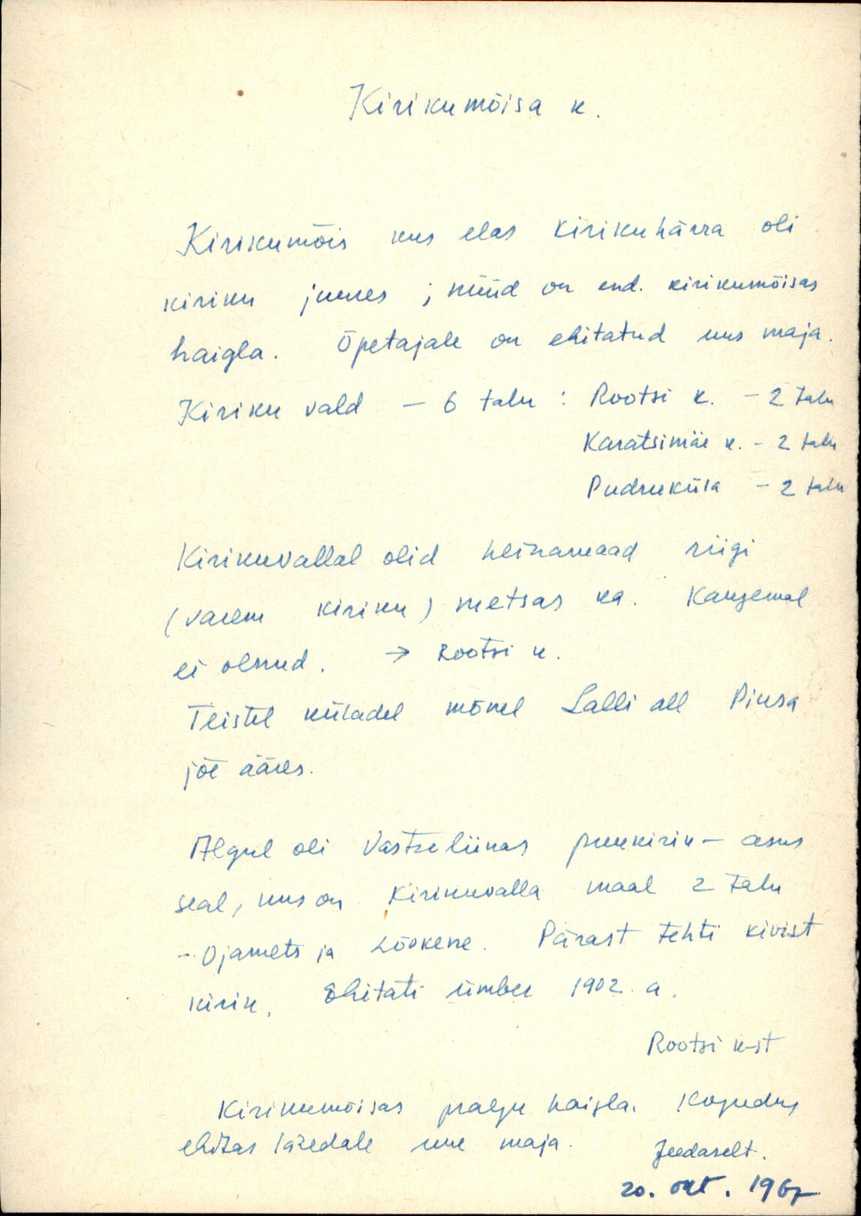 Kirikumõisa k.
Kirikumõis kus elas kirikuhärra oli
kiriku juures ; nüüd on end. kirikumõisas
haigla. Õpetajale on ehitatud uus maja.
Kiriku vald – 6 talu : Rootsi k. – 2 talu
Karatsimäe k. – 2 talu
Pudruküla – 2 talu
Kirikuvallal olid heinamaad riigi
(varem kiriku) metsas ka. Kaugemal
ei olnud. → Rootsi k.
Teistel küladel mõnel Lalli all Piusa
jõe ääres.
Algul oli Vastseliinas puukirik – asus
seal, kus on Kirikuvalla maal 2 talu
– Ojamets ja Lõokene. Pärast tehti kivist
kirik. Ehitati ümber 1902. a.
Rootsi k-st
Kirikumõisas praegu haigla. Kogudus
ehitas lähedale uue maja.
20. okt. 1967